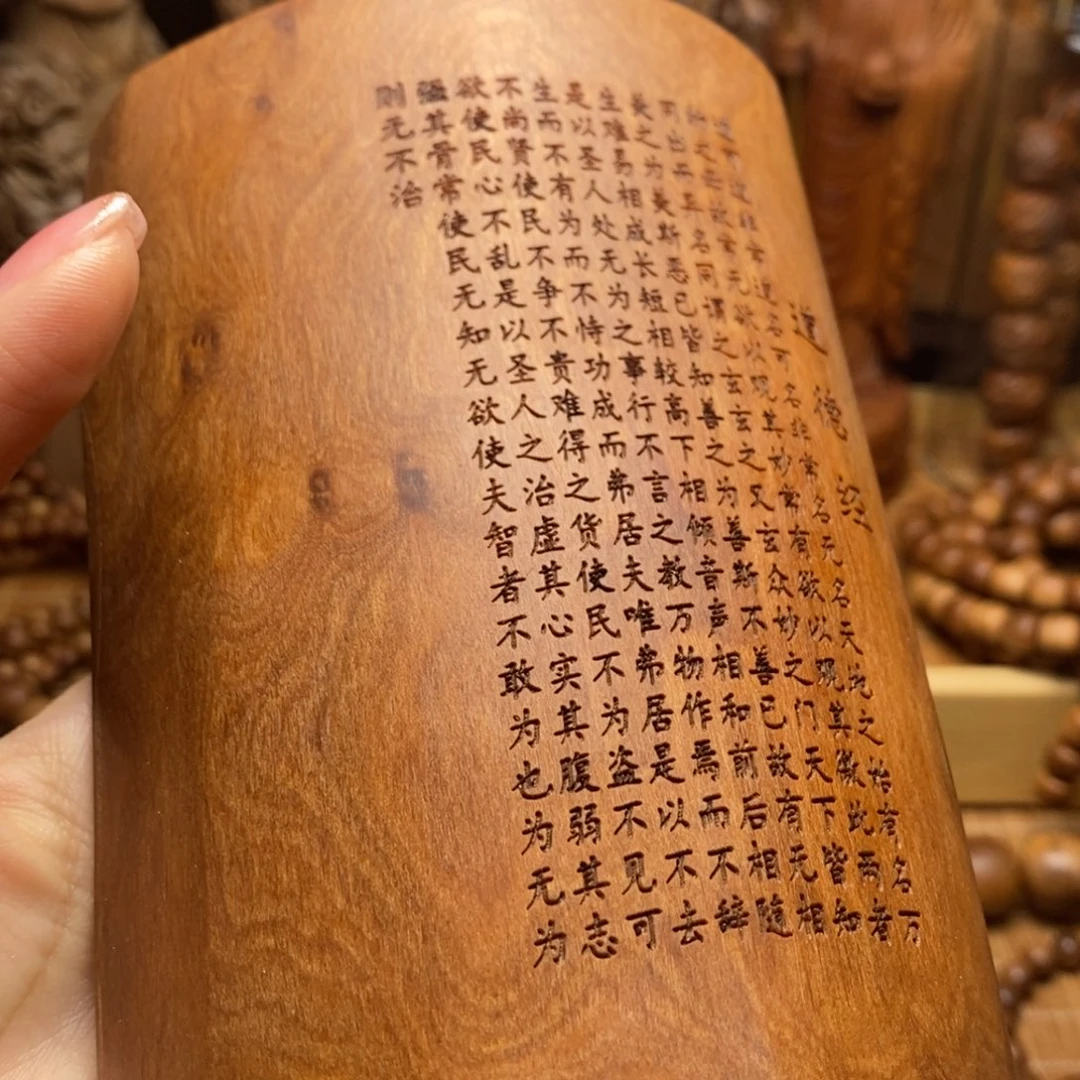 道德经
道可道非常道名可名非常名无名天地之始有名万
物之母故常无欲以观其妙常有欲以观其徼此两者
同出而异名同谓之玄玄之又玄众妙之门天下皆知
美之为美斯恶已皆知善之为善斯不善已故有无相
生难易相成长短相较高下相倾音声相和前后相随
是以圣人处无为之事行不言之教万物作焉而不辞
生而不有为而不恃功成而弗居夫唯弗居是以不去
不尚贤使民不争不贵难得之货使民不为盗不见可
欲使民心不乱是以圣人之治虚其心实其腹弱其志
强其骨常使民无知无欲使夫智者不敢为也为无为
则无不治